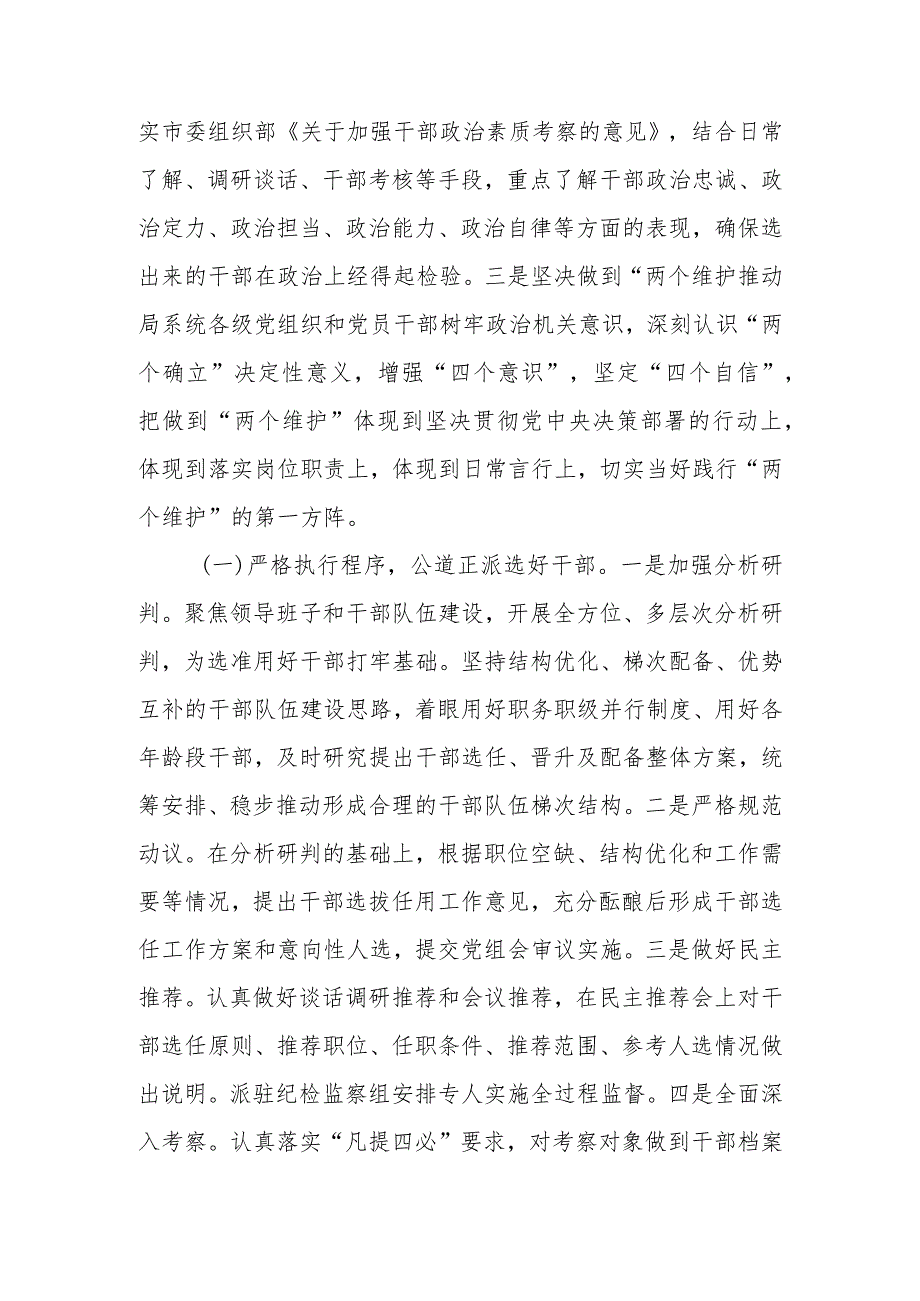 实市委组织部《关于加强干部政治素质考察的意见》，结合日常
了解、调研谈话、干部考核等手段，重点了解干部政治忠诚、政
治定力、政治担当、政治能力、政治自律等方面的表现，确保选
出来的干部在政治上经得起检验。三是坚决做到“两个维护推动
局系统各级党组织和党员干部树牢政治机关意识，深刻认识“两
个确立”决定性意义，增强“四个意识”，坚定“四个自信”，
把做到“两个维护”体现到坚决贯彻党中央决策部署的行动上，
体现到落实岗位职责上，体现到日常言行上，切实当好践行“两
个维护”的第一方阵。
(一)严格执行程序，公道正派选好干部。一是加强分析研
判。聚焦领导班子和干部队伍建设，开展全方位、多层次分析研
判，为选准用好干部打牢基础。坚持结构优化、梯次配备、优势
互补的干部队伍建设思路，着眼用好职务职级并行制度、用好各
年龄段干部，及时研究提出干部选任、晋升及配备整体方案，统
筹安排、稳步推动形成合理的干部队伍梯次结构。二是严格规范
动议。在分析研判的基础上，根据职位空缺、结构优化和工作需
要等情况，提出干部选拔任用工作意见，充分酝酿后形成干部选
任工作方案和意向性人选，提交党组会审议实施。三是做好民主
推荐。认真做好谈话调研推荐和会议推荐，在民主推荐会上对干
部选任原则、推荐职位、任职条件、推荐范围、参考人选情况做
出说明。派驻纪检监察组安排专人实施全过程监督。四是全面深
入考察。认真落实“凡提四必”要求，对考察对象做到干部档案